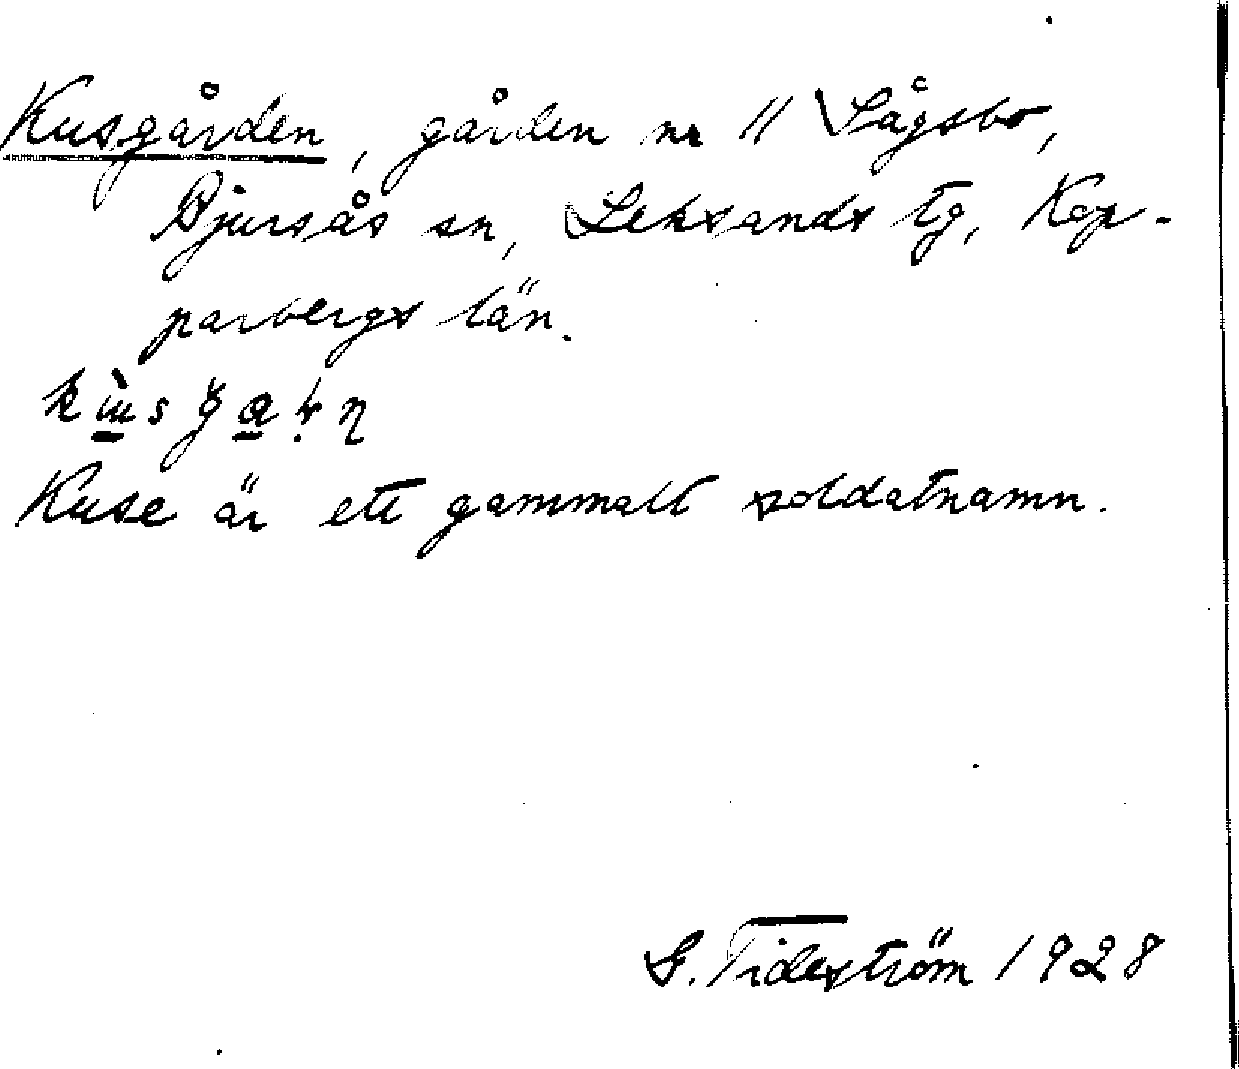 Kusgården, gården nr 11 Lågsbo,
Bjursås sn, Leksands tg, Kop-
parbergs län.
Kuse är ett gammalt soldatnamn.
G. Tideström 1928